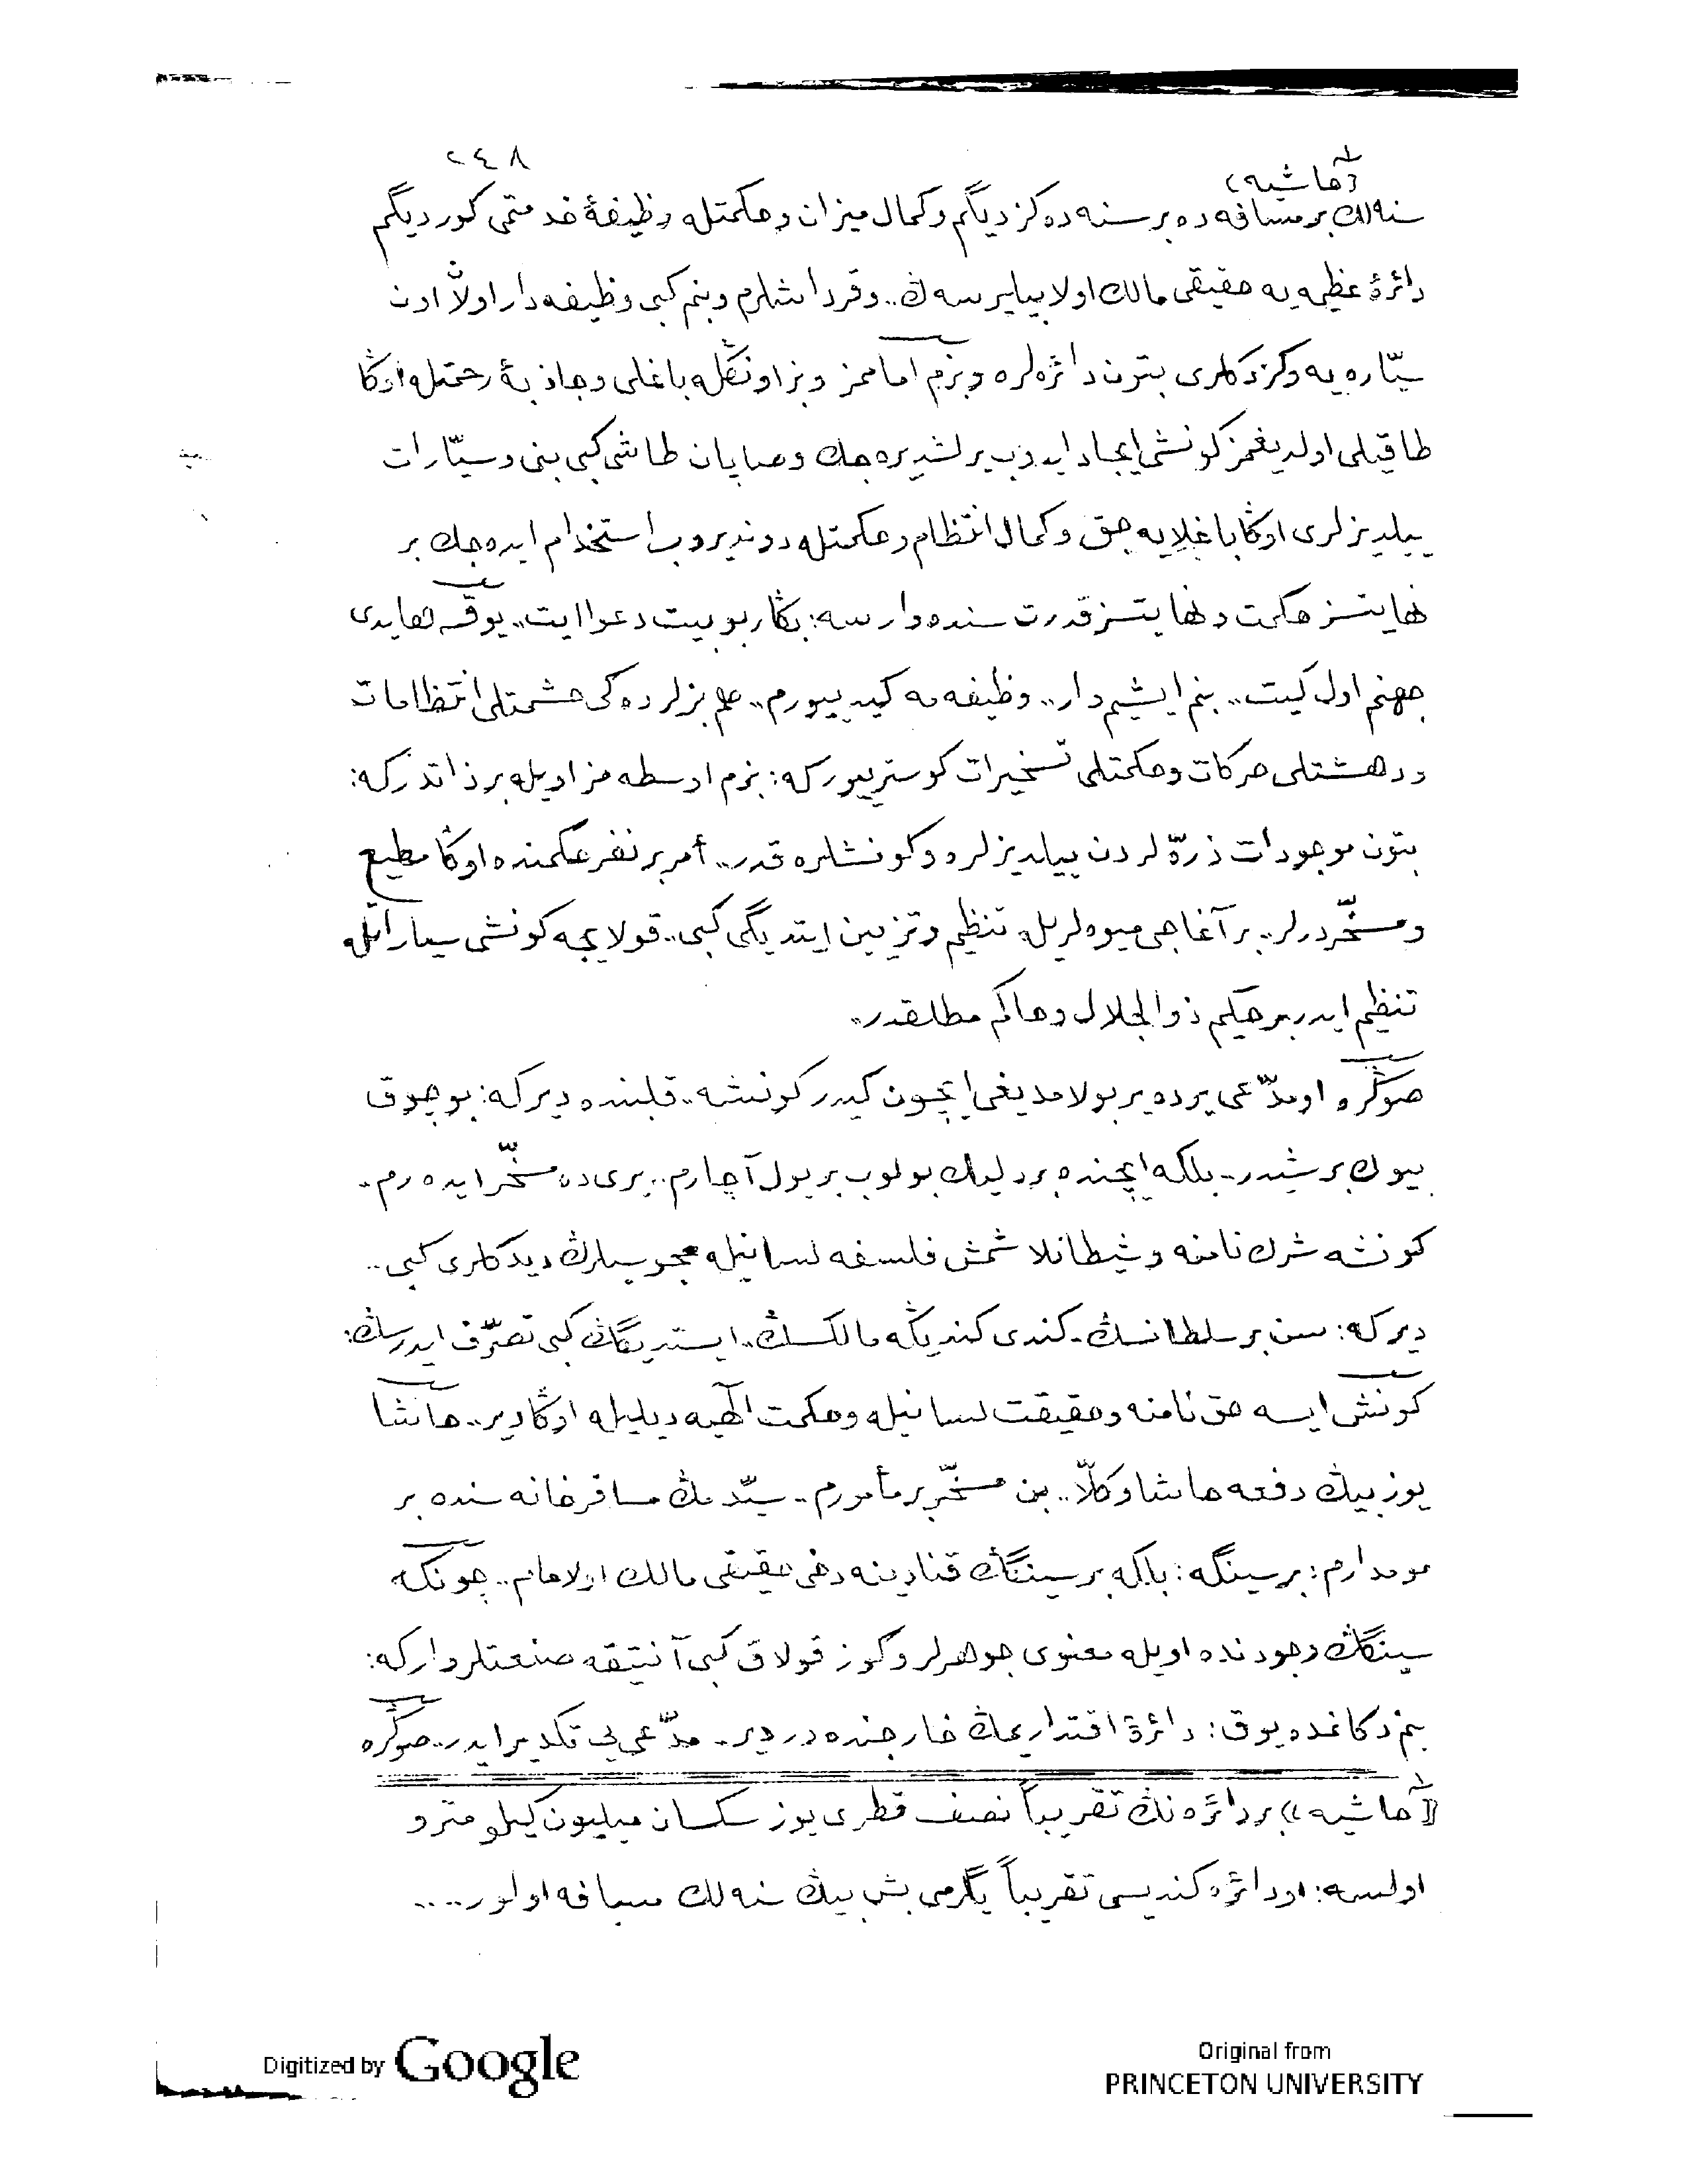 ٢٤٨
(حاشيه)
سنه‌لك بر مسافه‌ده بر سنه‌ده كزديگم و كمال ميزان و حكمتله وظيفهٔ خدمتمى كورديگم
دائرهٔ عظيمه‌يه حقيقى مالك اولابيليرسه‌ك.. و قرداشلرم و بنم كبى وظيفه‌دار اولاڭ اون
سيّاره‌يه و كزدكلرى بتون دائره‌لره و بزم امامز و بز اونڭله باغلى و جاذبهٔ رحمتله اوڭا
طاقيلى اولديغمز كونشى ايجاد ايدوب يرلشديره‌جك و صاپان طاشى كبى بنى و سيّارات
ييلديزلرى اوڭا باغلايه‌جق و كمال انتظام و حكمتله دونديروب استخدام ايده‌جك بر
نهايتسز حكمت و نهايتسز قدرت سنده وارسه: بڭا ربوبيت دعوا ايت.. يوقسه هايدى
جهنم اول كيت.. بنم ايشيم وار.. وظيفه‌مه كيدييورم.. هم بزلرده‌كى حشمتلى انتظامات
و دهشتلى حركات و حكمتلى تسخيرات كوسترييور كه: بزم اوسطه‌مز اويله بر ذاتدر كه:
بتون موجودات ذرّه‌لردن ييلديزلره و كونشلره قدر.. أمربر نفر حكمنده اوڭا مطيع
و مسخّردرلر.. بر آغاجى ميوه‌لريله تنظيم و تزيين ايتديگى كبى.. قولايجه كونشى سياراتله
تنظيم ايدر بر حكيم ذوالجلال و حاكم مطلقدر..
صوڭره او مدّعى يرده ير بولامديغى ايچون كيدر كونشه.. قلبنده دير كه: بو چوق
بيوك بر شيدر.. بلكه ايچنده بر دليك بولوب بر يول آچارم.. يرى ده مسخّر ايده‌رم..
كونشه شرك نامنه و شيطانلاشمش فلسفه لسانيله مجوسيلرڭ ديدكلرى كبى..
دير كه: سن بر سلطانسڭ.. كندى كنديڭه مالكسڭ.. ايستديگڭ كبى تصرّف ايدرسڭ:
كونش ايسه حق نامنه و حقيقت لسانيله و حكمت الٓهيه ديليله اوڭا دير.. حاشا
يوز بيڭ دفعه حاشا و كلّا.. بن مسخّر بر مأمورم.. سيّدمڭ مسافرخانه‌سنده بر
مومدارم: بر سينگه: بلكه بر سينگڭ قنادينه دخى حقيقى مالك اولامام.. چونكه
سينگڭ وجودنده اويله معنوى جوهرلر و كوز قولاق كبى آنتيقه صنعتلر وار كه:
بنم دكانمده يوق: دائرهٔ اقتداريمڭ خارجنده‌در دير.. مدّعى‌يى تكدير ايدر.. صوڭره
(حاشيه) بر دائره‌نڭ تقريباً نصف قطرى يوز سكسان ميليون كيلومترو
اولسه: او دائره كنديسى تقريباً يگرمى بش بيڭ سنه‌لك مسافه اولور....
Digitized by Google
Original from
PRINCETON UNIVERSITY